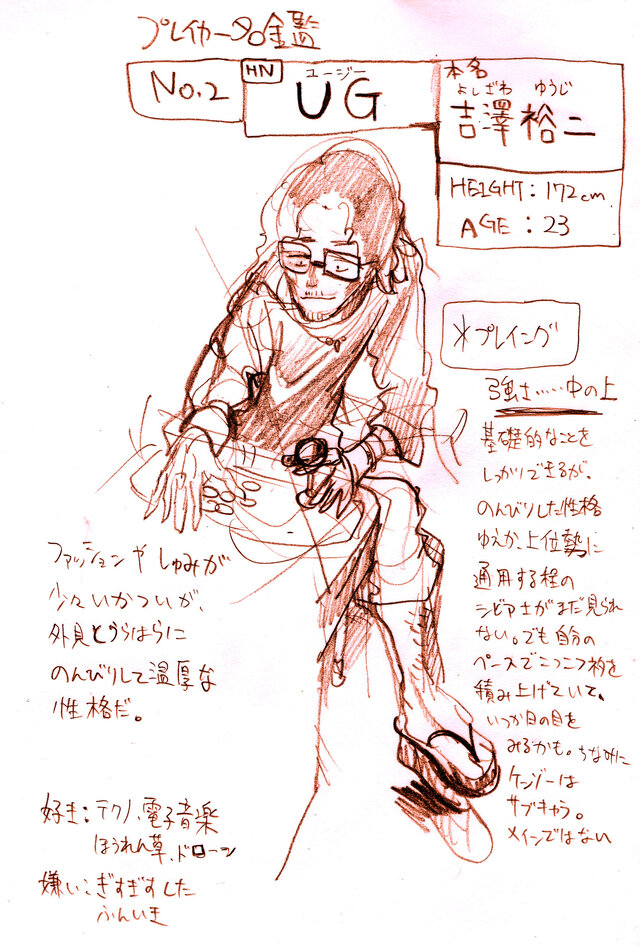 プレイヤー名鑑
No.2
HN
ユージー
UG
本名
よしざわ ゆうじ
吉澤裕二
HEIGHT：172cm.
AGE：23
*プレイング
強さ……中の上
基礎的なことを
しっかりできるが、
のんびりした性格
ゆえか、上位勢に
通用する程の
シビアさがまだ見られ
ない。でも自分の
ペースでこつこつ
積み上げていて、
いつか日の目を
みるかも。ちなみに
ケンゾーは
サブキャラ。
メインではない
ファッションやしゅみが
少々いかついが、
外見とうらはらに
のんびりして温厚な
性格だ。
好き：テクノ、電子音楽
ほうれん草、ドローン
嫌い：ぎすぎすした
ふんいき